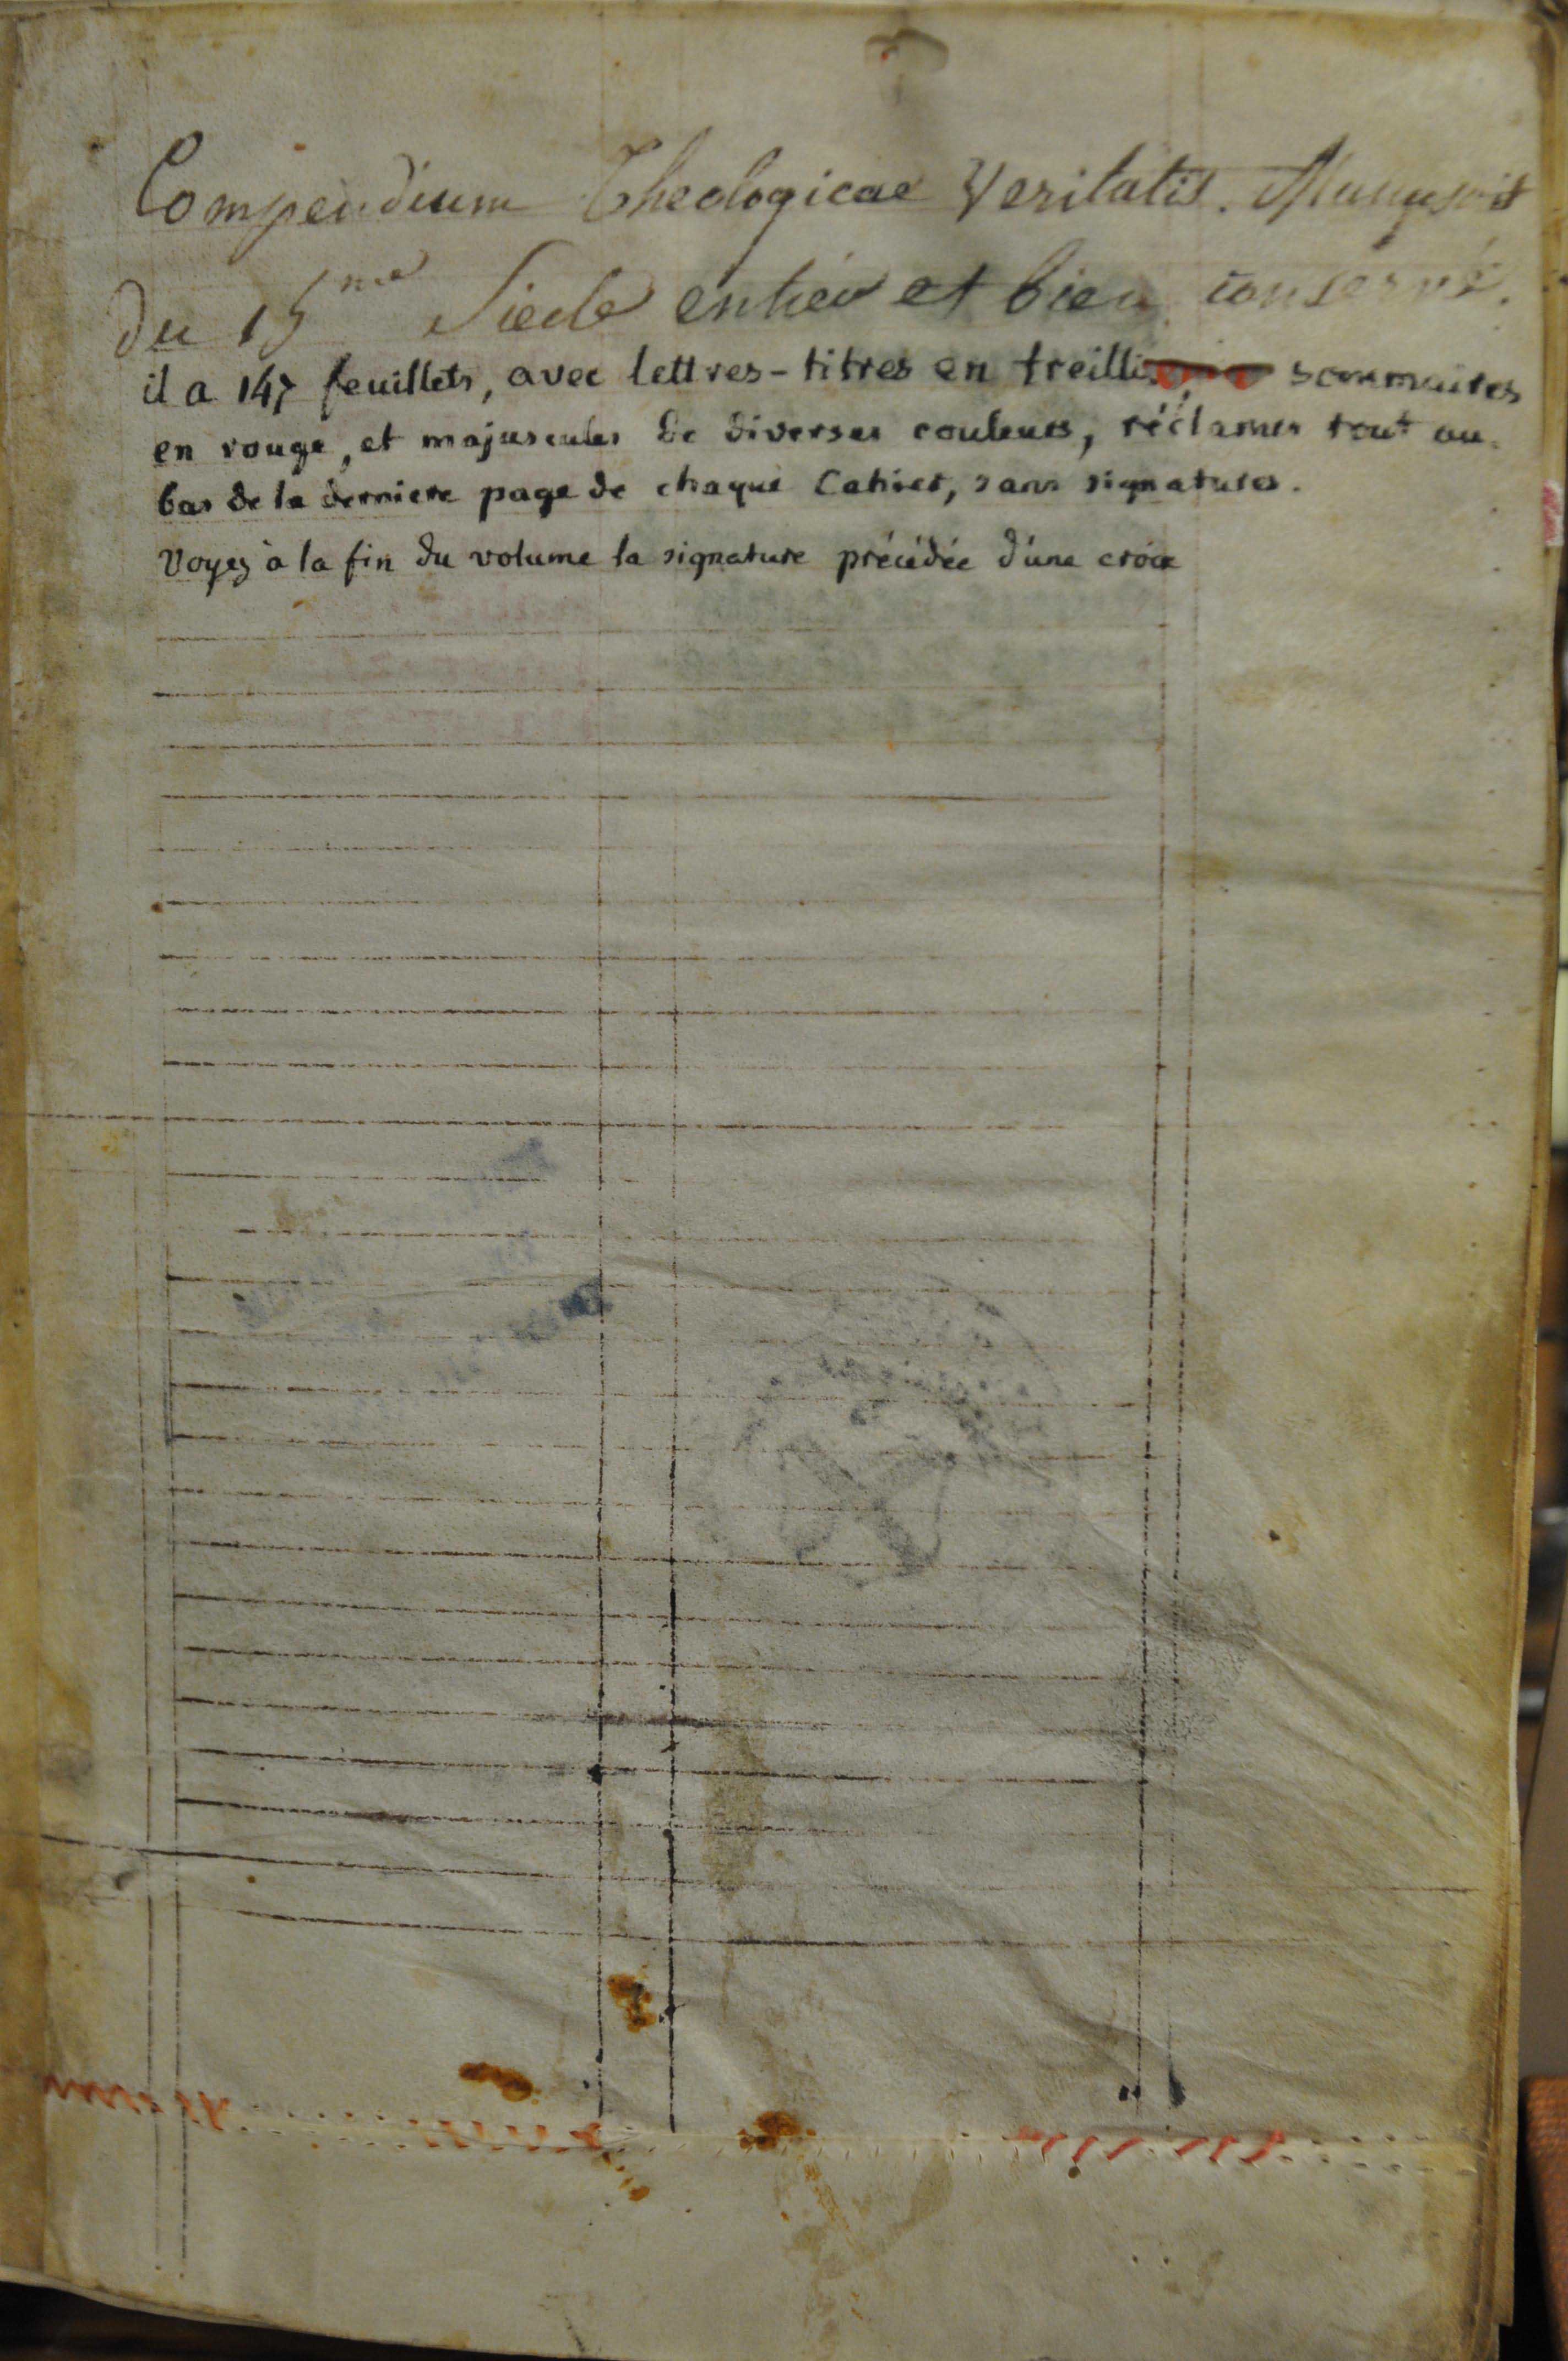 Compendium Theologicae Veritatis. Manuscrit
du 15me Siecle entier et bien conservé.
il a 147 feuillets, avec lettres-titres en treillis, sommaires
en rouge, et majuscules de diverses couleurs, réclames tout au
bas de la derniere page de chaque Cahier, sans signatures.
Voyez à la fin du volume la signature précédée d'une croix